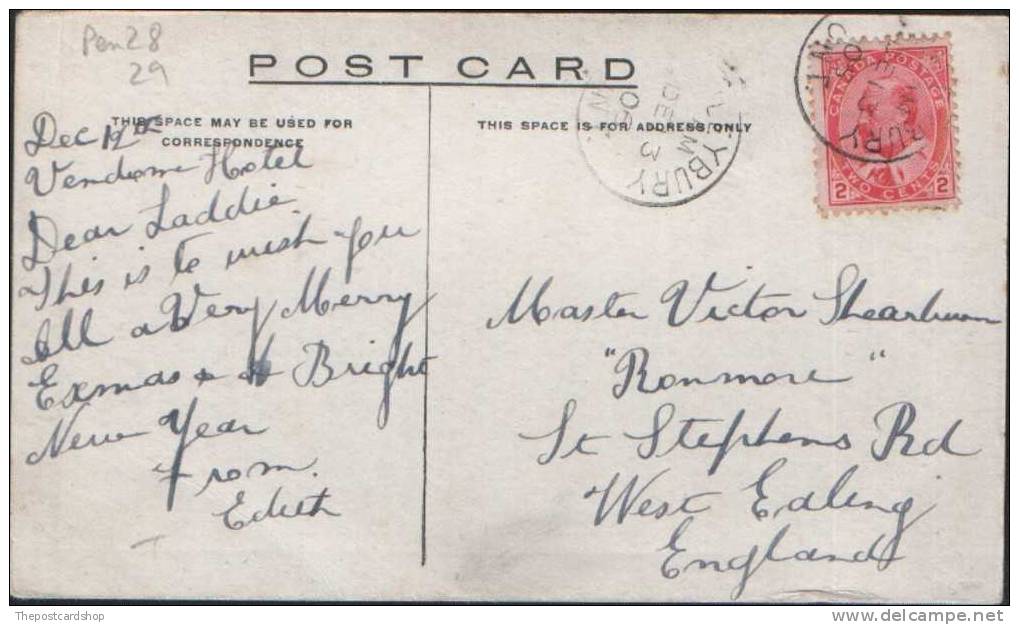 Pen 28
29
POST CARD
THIS SPACE MAY BE USED FOR
CORRESPONDENCE
THIS SPACE IS FOR ADDRESS ONLY
Dec 12th
Vendome Hotel
Dear Laddie
This is to wish you
all a Very Merry
Exmas & A Bright
New Year
From
Edith
Master Victor
"Ronmore"
St Stephens Rd
West Ealing
England
CANADA POSTAGE
2 TWO CENTS 2
YBURY
AM
DE 13
ONT
BURY
ONT
Thepostcardshop
www.delcampe.net